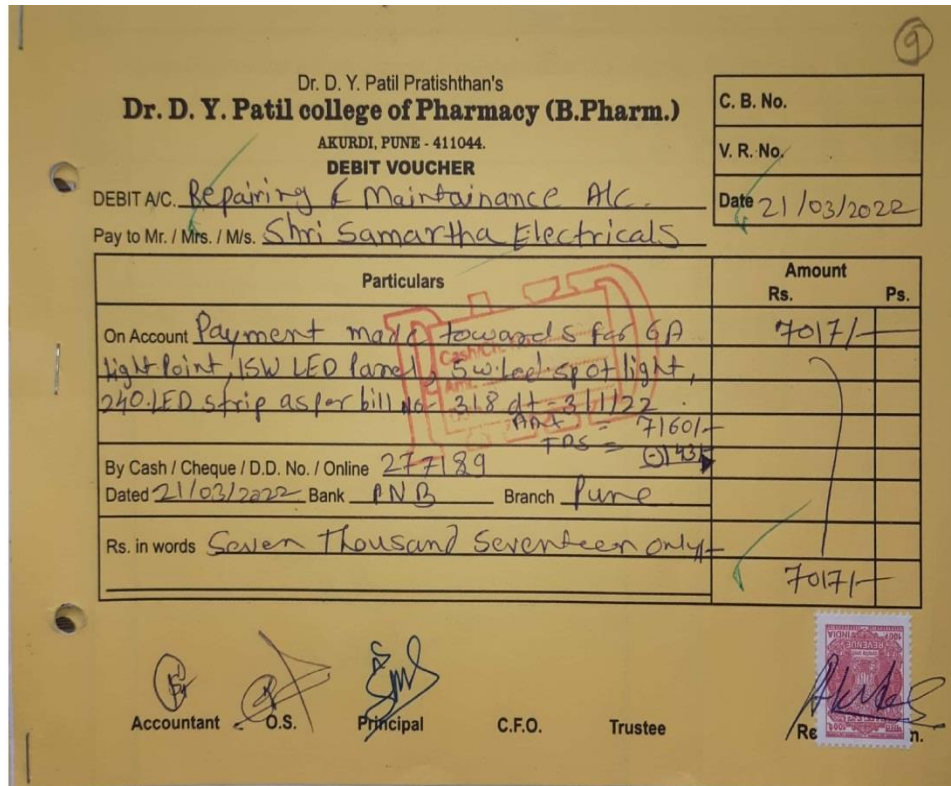 9
Dr. D. Y. Patil Pratishthan's
Dr. D. Y. Patil college of Pharmacy (B.Pharm.)
AKURDI, PUNE - 411044.
DEBIT VOUCHER
C. B. No.
V. R. No.
Date 21/03/2022
DEBIT A/C. Repairing & Maintainance A/c.
Pay to Mr. / Mrs. / M/s. Shri Samartha Electricals
Particulars Amount
Rs. Ps.
On Account Payment made towards for 6A 7017/-
Light Point, 15W LED Panel, 5w.Led spot light,
240.LED strip as per bill No- 318 dt - 3/1/22.
Amt = 7160/-
TDS = (-)143/-
By Cash / Cheque / D.D. No. / Online 277189
Dated 21/03/2022 Bank PNB Branch Pune
Rs. in words Seven Thousand Seventeen only/-
7017/-
Accountant O.S. Principal C.F.O. Trustee
INDIA
REVENUE